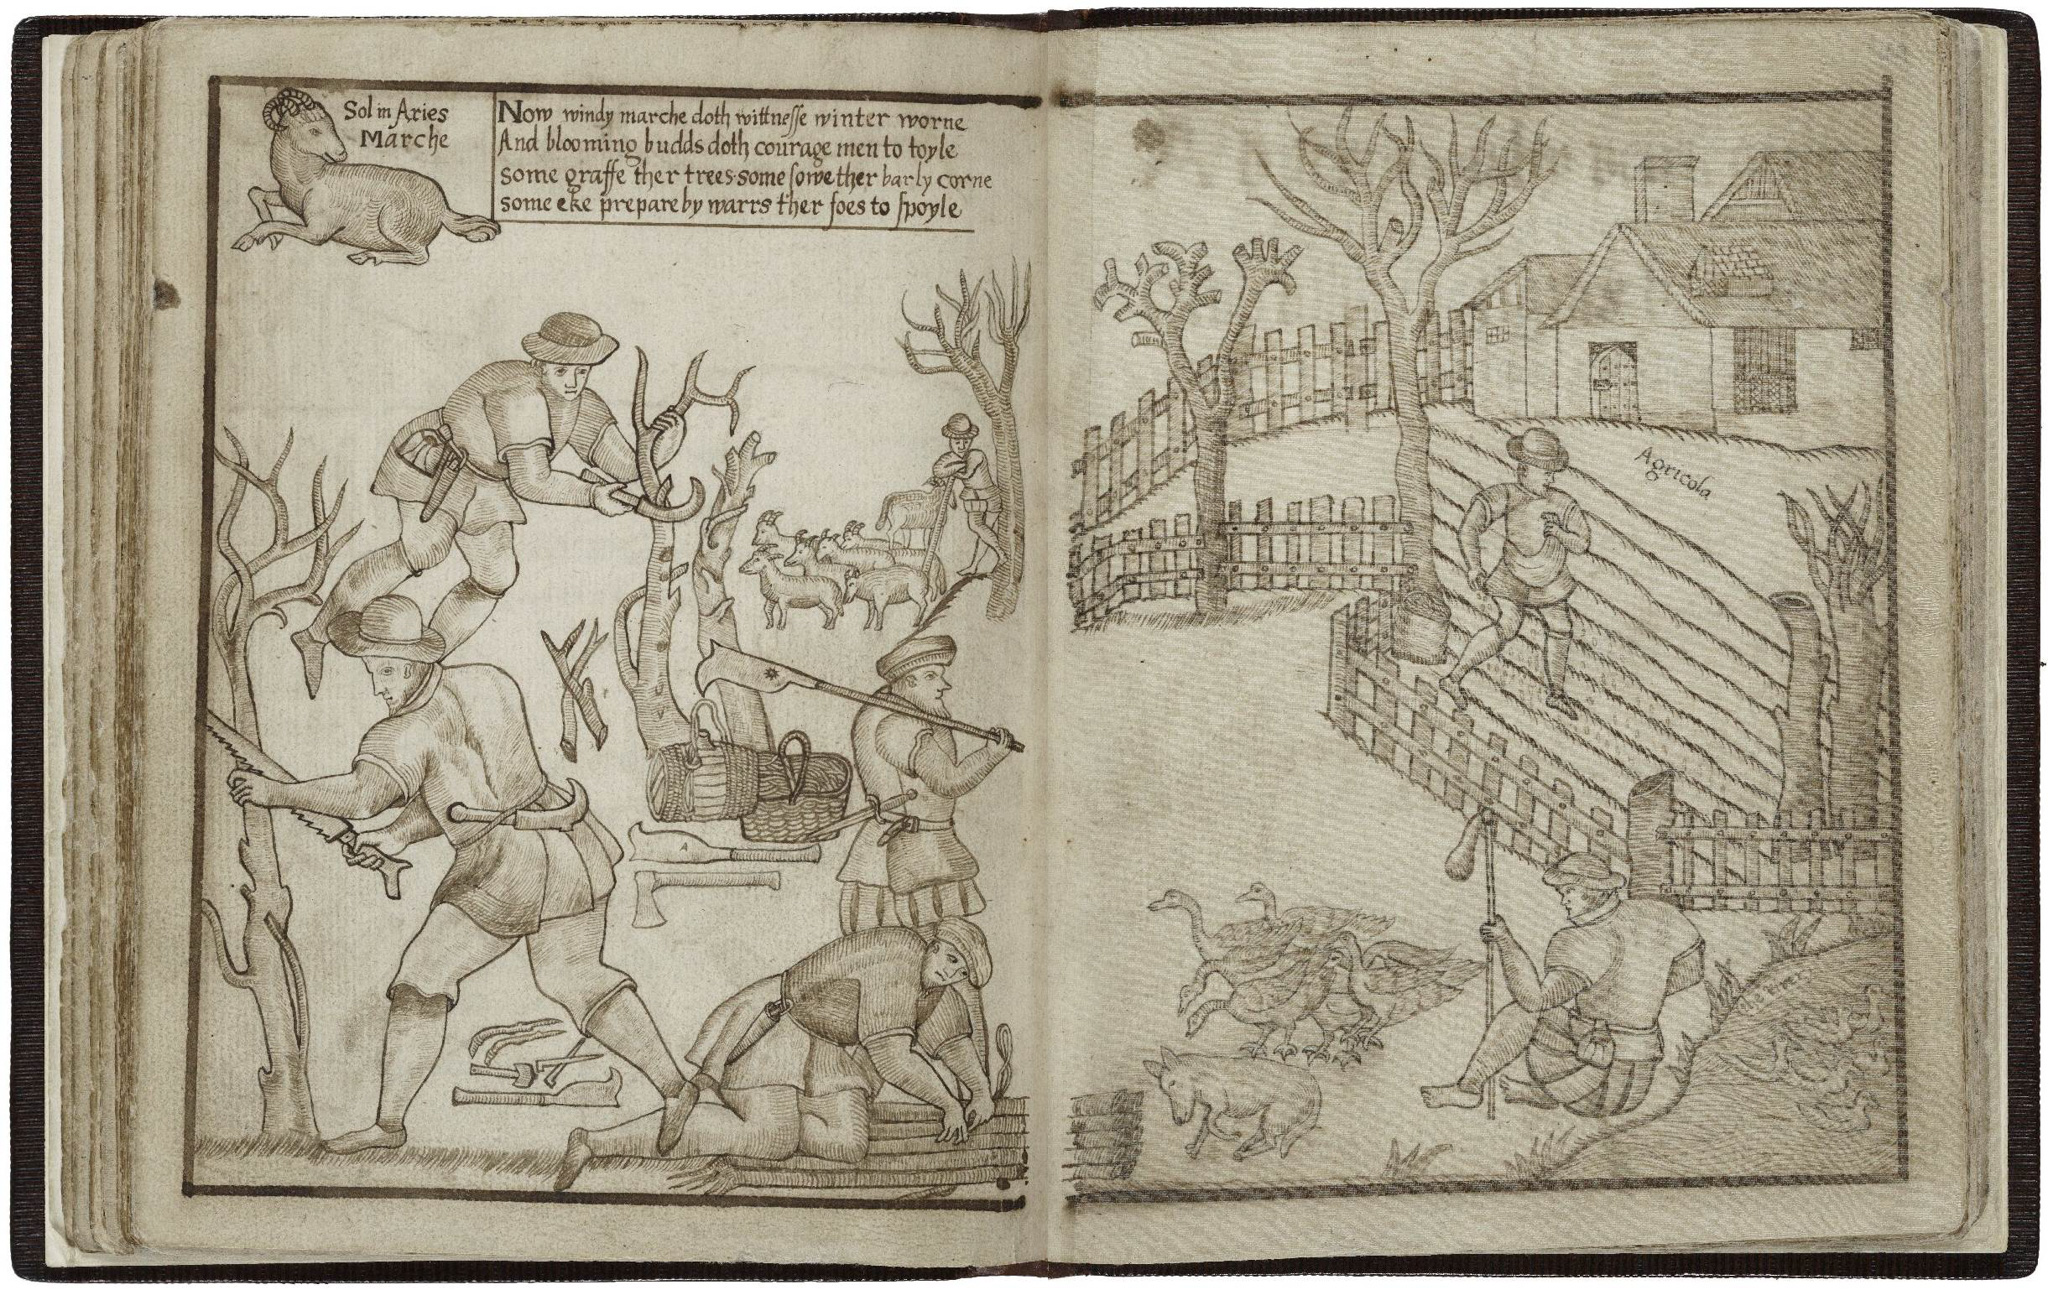 Sol in Aries
Marche
Now windy marche doth wittnesse winter worne
And blooming budds doth courage men to toyle
some graffe ther trees some sowe ther barly corne
some eke prepare by warrs ther foes to spoyle
Agricola
A
the river